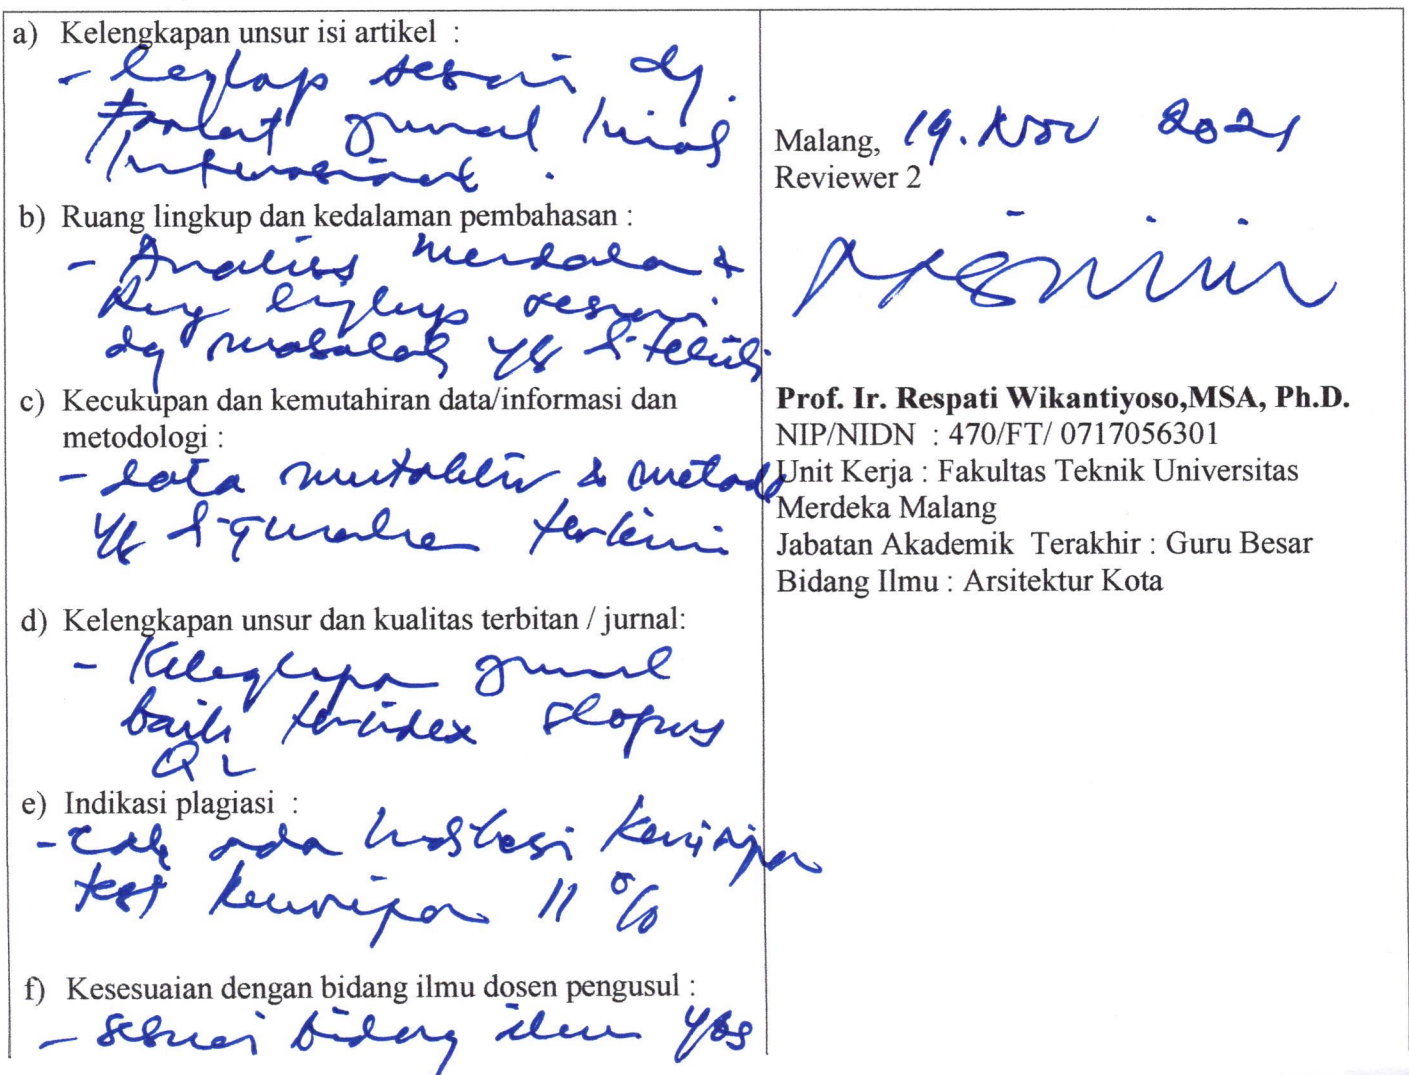 a) Kelengkapan unsur isi artikel :
- lengkap sesuai dg
Format jurnal Ilmiah
Internasional .
b) Ruang lingkup dan kedalaman pembahasan :
- Analisis mendalam &
Ruang lingkup sesuai
dg masalah yg diteliti
c) Kecukupan dan kemutahiran data/informasi dan
metodologi :
- data mutakhir & metode
yg digunakan terkini
d) Kelengkapan unsur dan kualitas terbitan / jurnal:
- Kelengkapan jurnal
baik terindex scopus
Q2
e) Indikasi plagiasi :
- tdk ada indikasi kemiripan
test kemiripan 11 %
f) Kesesuaian dengan bidang ilmu dosen pengusul :
- sesuai bidang ilmu
Malang, 19. Nov 2021
Reviewer 2
Prof. Ir. Respati Wikantiyoso,MSA, Ph.D.
NIP/NIDN : 470/FT/ 0717056301
Unit Kerja : Fakultas Teknik Universitas
Merdeka Malang
Jabatan Akademik Terakhir : Guru Besar
Bidang Ilmu : Arsitektur Kota